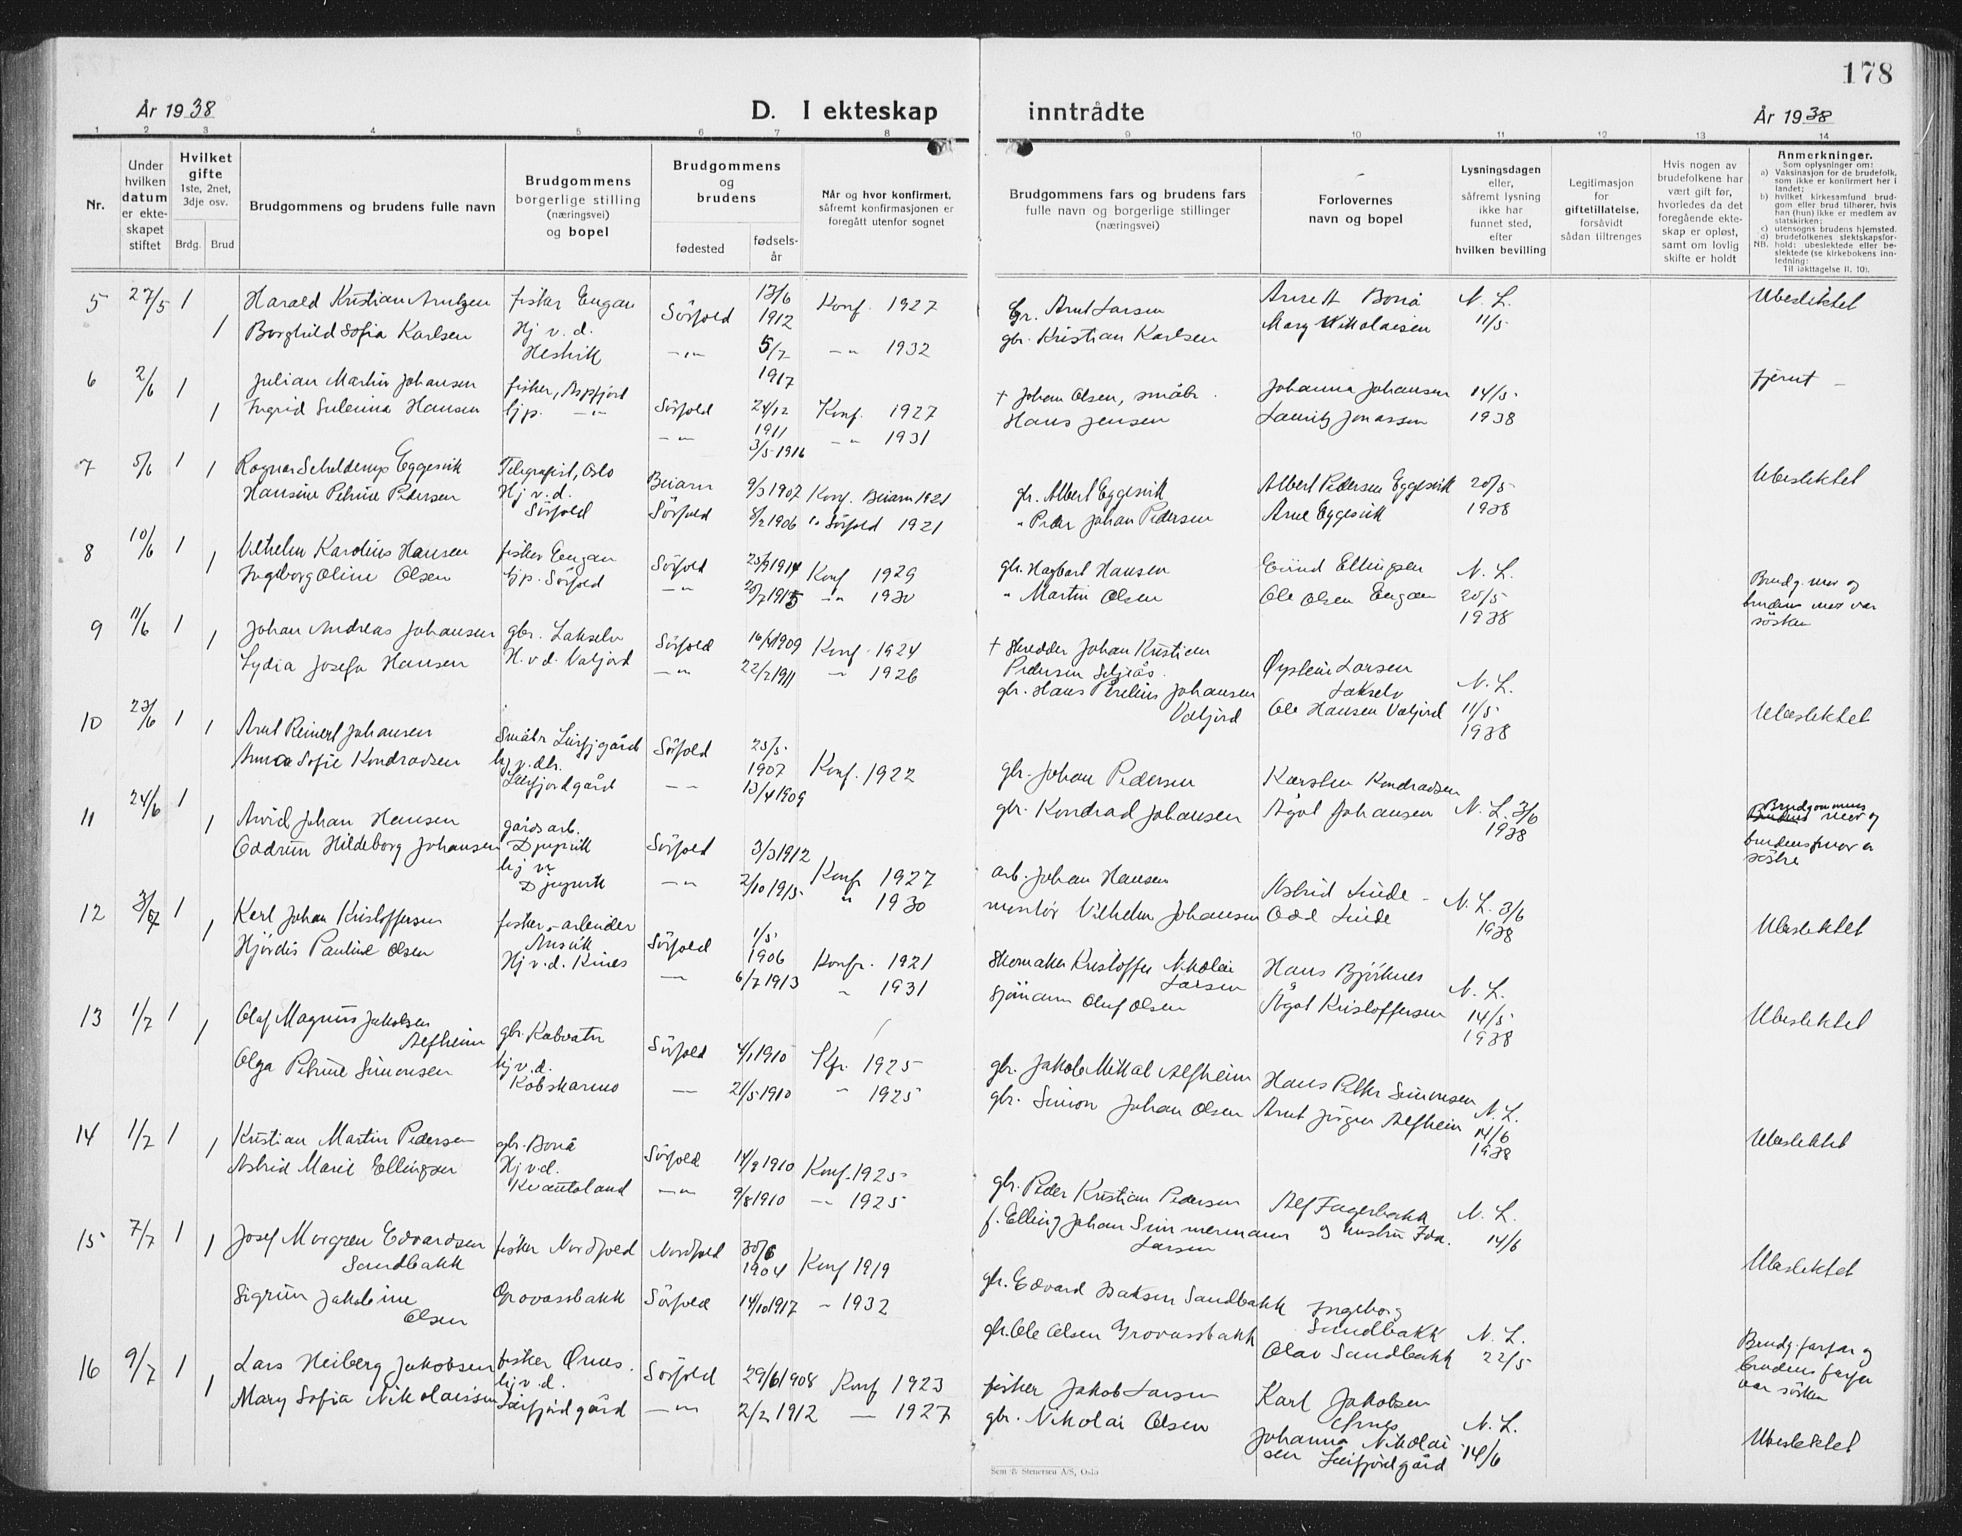 178
År 1938
D. I ekteskap inntrådte
År 1938
1 2 3 4 5 6 7 8 9 10 11 12 13 14
Nr.
Under hvilken datum er ekte-skapet stiftet
Hvilket gifte 1ste, 2net, 3dje osv.
Brdg. Brud
Brudgommens og brudens fulle navn
Brudgommens borgerlige stilling (næringsvei) og bopel
Brudgommens og brudens
fødested
fødsels-år
Når og hvor konfirmert, såfremt konfirmasjonen er foregått utenfor sognet
Brudgommens fars og brudens fars fulle navn og borgerlige stillinger (næringsvei)
Forlovernes navn og bopel
Lysningsdagen eller, såfremt lysning ikke har funnet sted, efter hvilken bevilling
Legitimasjon for giftetillatelse, forsåvidt sådan tiltrenges
Hvis nogen av brudefolkene har vært gift før, hvorledes da det foregående ekte-skap er opløst, samt om lovlig skifte er holdt
Anmerkninger.
Som oplysninger om:
a) Vaksinasjon for de brudefolk, som ikke er konfirmert her i landet;
b) hvilket kirkesamfund brud-gom eller brud tilhører, hvis han (hun) ikke er medlem av statskirken;
c) utensogns brudens hjemsted.
d) brudefolkenes slektskapsfor-
NB. hold: ubeslektede eller be-slektede (se kirkebokens inn-ledning:
Til iakttagelse II, 10).
5 27/5 1 Harald Kristian Arntzen fisker Engan Sörfold 13/6 1912 Konf. 1927 gbr. Arnt Larsen Anne H Bonå N. L. 11/5 Ubeslektet
1 Borghild Sofia Karlsen Hj v. d. Hestvik -"- 5/7 1917 -"- 1932 gbr. Kristian Karlsen Mary Nikolaisen
6 2/6 1 Julian Martin Johansen fisker, Aspfjord Sörfold 24/12 1911 Konf. 1927 † Johan Olsen, småbr. Johanna Johansen 14/5 1938 fjernt -
1 Ingrid Sulerina Hansen hjp. -"- -"- 3/5 1916 -"- 1931 Hans Jensen Lauritz Jonassen
7 5/6 1 Ragnar Schelderup Eggesvik Telegrafist, Oslo Beiarn 9/3 1907 Konf. Beiarn 1921 gbr. Albert Eggesvik Albert Pedersen Eggesvik 20/5 1938 Ubeslektet
1 Hansine Petrine Pedersen Hj v. d. Sörfold Sörfold 8/2 1906 " Sörfold 1921 " Peder Johan Pedersen Arne Eggesvik
8 10/6 1 Vilhelm Karolius Hansen fisker Engan Sörfold 25/9 1914 Konf 1929 gbr. Hagbart Hansen Eivind Ellingsen N. L. 20/5 1938 Brudg. mor og brudens mor var søsken
1 Ingeborg Oline Olsen hjp. Sörfold -"- 20/7 1915 -"- 1930 " Martin Olsen Ole Olsen Engan
9 11/6 1 Johan Andreas Johansen gbr. Lakselv Sörfold 16/4 1909 Konf. 1924 † Skredder Johan Kristian Pedersen Øystein Larsen Lakselv N. L. 11/5 1938 Ubeslektet
1 Lydia Josefa Hansen H. v. d. Valjord -"- 22/2 1911 " 1926 gbr. Hans Johansen Valjord Ole Hansen Valjord
10 23/6 1 Arnt Reinert Johansen Småbr Leirfj.gård Sörfold 25/5 1907 Konf. 1922 gbr. Johan Pedersen Karsten Kondradsen N. L. 3/6 1938 Brudgommens mor og brudens mor er søstre
1 Anna Sofie Kondradsen hj. v. d. Leirfjordgård -"- 13/4 1909 gbr. Kondrad Johansen Ågot Johansen
11 24/6 1 Arvid Johan Hansen gårdsarb. Djupvik Sörfold 3/3 1912 Konf. 1927 arb. Johan Hansen Astrid Linde N. L. 3/6 1938 Ubeslektet
1 Oddrun Hildeborg Johansen hj v. Djupvik -"- 2/10 1915 " 1930 montör Vilhelm Johansen Odd Linde
12 3/7 1 Karl Johan Kristoffersen fisker-arbeider Ansvik Sörfold 1/5 1906 Konf. 1921 Skomaker Kristoffer Nikolai Larsen Hans Björknes N. L. 14/5 1938 Ubeslektet
1 Hjördis Pauline Olsen Hj v. d. Kines - 6/7 1913 " 1931 Sjömann Oluf Olsen Ågot Kristoffersen
13 1/7 1 Olaf Magnus Jakobsen Alfheim gbr. Kobvatn Sörfold 4/1 1910 Kfr. 1925 gbr. Jakob Mikal Alfheim Hans Petter Simonsen N. L. 14/6 1938 Ubeslektet
1 Olga Petrine Simonsen hj v. d. Kobskarmo - 21/5 1910 " 1925 gbr. Simon Johan Olsen Arnt Jörgen Alfheim
14 1/7 1 Kristian Martin Pedersen gbr. Bonå Sörfold 14/9 1910 Konf. 1925 gbr. Peder Kristian Pedersen Alf Fagerbakk N. L. 14/6 Ubeslektet
1 Astrid Marie Ellingsen Hj v. d. Kvantoland -"- 9/8 1910 -"- 1925 f. Elling Johan Larsen og hustru Ida.
15 7/7 1 Josef Morgren Edvardsen Sandbakk fisker Nordfold Nordfold 30/6 1904 Konf 1919 gbr. Edvard Isaksen Sandbakk Ingeborg Sandbakk N. L. 22/5 Brudg. farfar og brudens farfar var søsken
1 Sigrun Jakobine Olsen Grovassbakk Sörfold 14/10 1917 " 1932 gbr. Ole Olsen Grovassbakk Olav Sandbakk
16 9/7 1 Lars Heiberg Jakobsen fisker Ørnes. Sörfold 29/6 1908 Konf 1923 fisker Jakob Larsen Karl Jakobsen Ørnes N. L. 14/6 Ubeslektet
1 Mary Sofia Nikolaissen hj v. d. Leirfjordgård -"- 2/2 1912 - 1927 gbr. Nikolai Olsen Johanna Nikolaisen Leirfjordgård
Sem & Stenersen A/S, Oslo